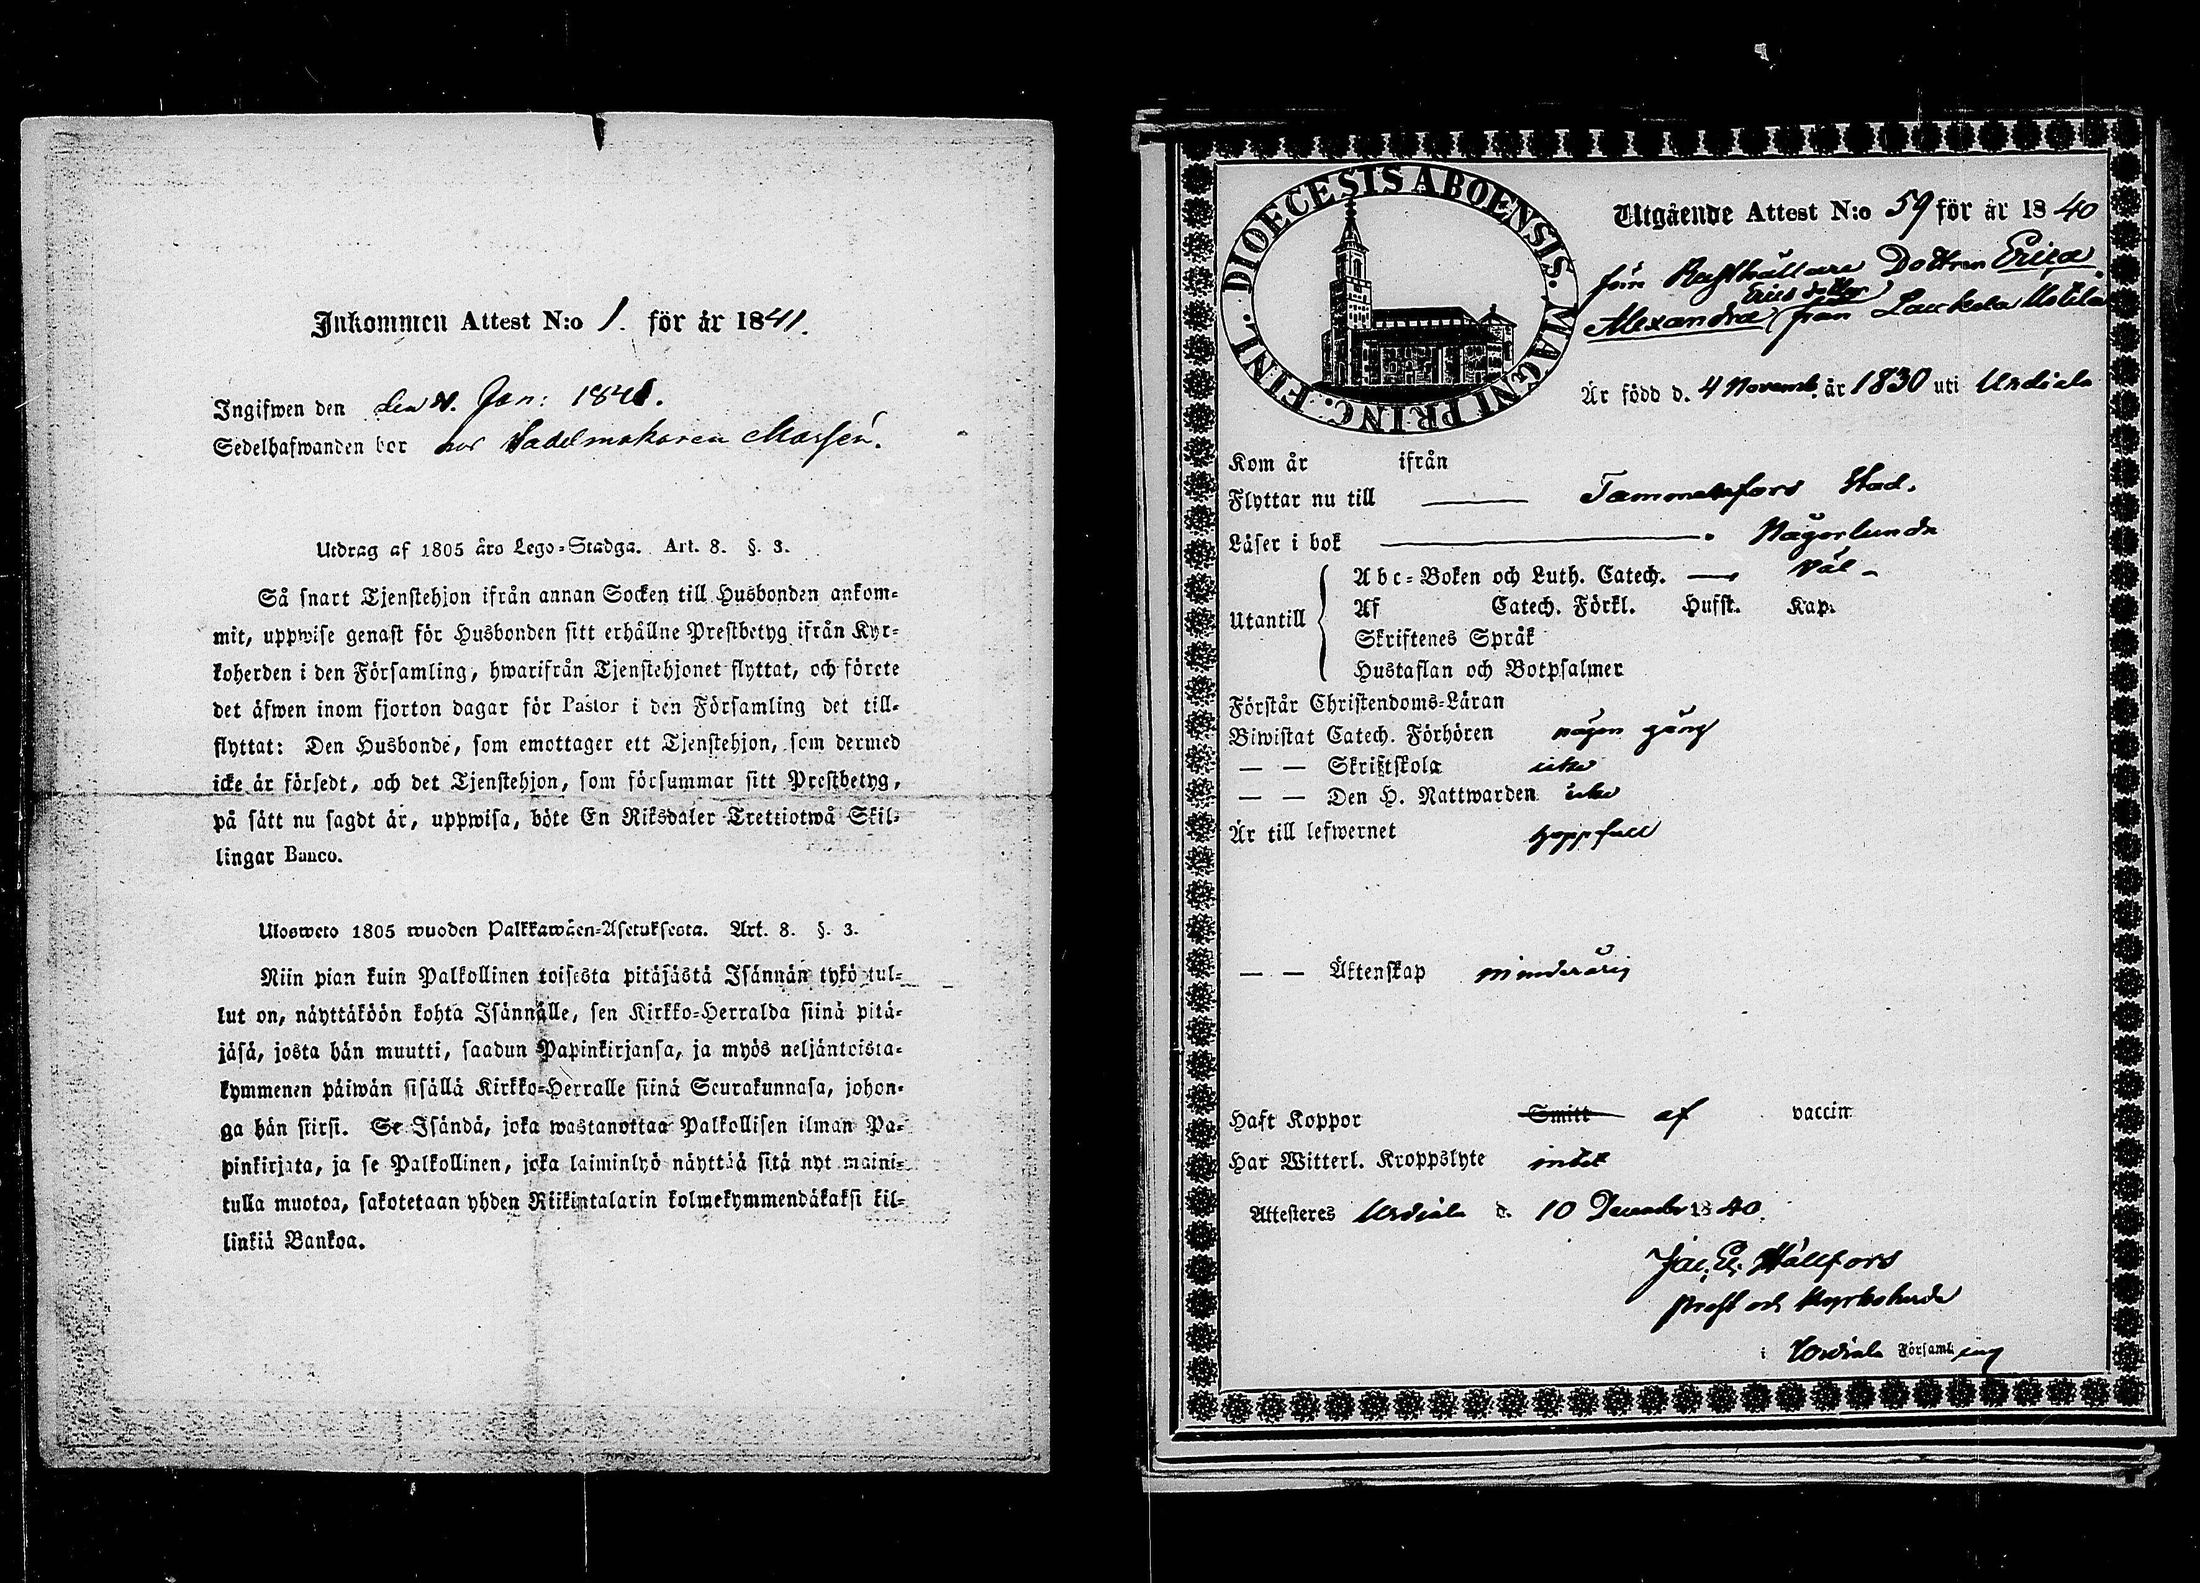 Inkommen Attest N:o 1. för år 1841.
Ingifwen den den Jan: 1841.
Sedelhafwanden bor hos Sadelmakaren
Utdrag af 1805 års Lego-Stadga. Art. 8. §. 3.
Så snart Tjenstehjon ifrån annan Socken till Husbonden ankom-
mit, uppwise genast för Husbonden sitt erhållne Prestbetyg ifrån Kyr-
koherden i den Församling, hwarifrån Tjenstehjonet flyttat, och förete
det äfwen inom fjorton dagar för Pastor i den Församling det till-
flyttat: Den Husbonde, som emottager ett Tjenstehjon, som dermed
icke är försedt, och det Tjenstehjon, som försummar sitt Prestbetyg,
på sätt nu sagdt är, uppwisa, böte En Riksdaler Trettiotwå Skil-
lingar Banco.
Ulosweto 1805 wuoden Palkkawäen-Asetuksesta. Art. 8. §. 3.
Niin pian kuin Palkollinen toisesta pitäjästä Isännän tykö tul-
lut on, näyttäköön kohta Isännälle, sen Kirkko-Herralda siinä pitä-
jäsä, josta hän muutti, saadun Papinkirjansa, ja myös neljäntoista-
kymmenen päiwän sisällä Kirkko-Herralle siinä Seurakunnasa, johon-
ga hän siirsi. Se Isändä, joka wastanottaa Palkollisen ilman Pa-
pinkirjata, ja se Palkollinen, joka laiminlyö näyttää sitä nyt maini-
tulla muotoa, sakotetaan yhden Riikintalarin kolmekymmendäkaksi kil-
linkiä Bankoa.
DIOECESIS ABOENSIS. MAGNI PRINC. FINL.
Utgående Attest N:o 59 för år 1840
för Rusthållare Dottren Erica
Ericsdotter
Alexandra från Laukela
Är född d. 4 Novemb. år 1830 uti Urdiala
Kom år ifrån
Flyttar nu till Tammerfors Stad.
Läser i bok Någorlunda
Utantill
Abc-Boken och Luth. Catech. Väl
Af Catech. Förkl. Hufst. Kap.
Skriftenes Språk
Hustaflan och Botpsalmer
Förstår Christendoms-Läran
Biwistat Catech. Förhören någon gång
— — Skriftskola icke
— — Den H. Nattwarden icke
Är till lefwernet hoppfull
— — Äktenskap minderårig
Haft Koppor Smitt af vaccin
Har Witterl. Kroppslyte intet
Attesteres Urdiala d. 10 December 1840.
Jac. Ey. Hällfors
Prost och Kyrkoherde
i Urdiala Församling